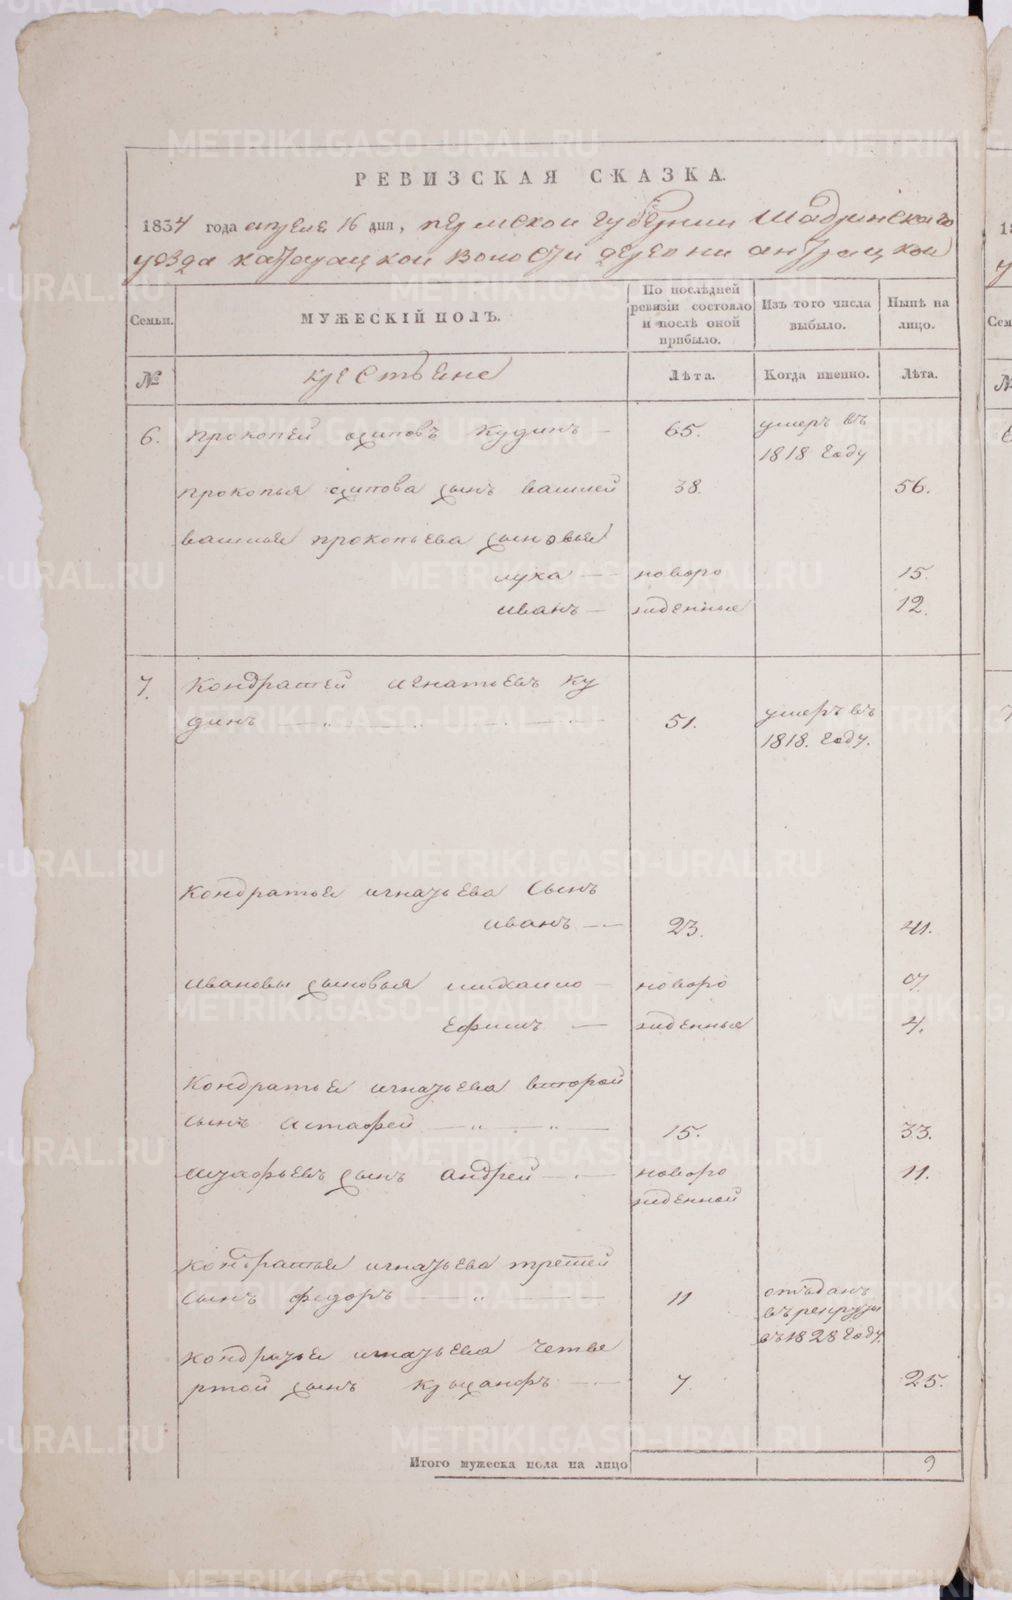 РЕВИЗСКАЯ СКАЗКА.
1834 года апреля 16 дня, пермской губернии Шадринскаго
уезда катайской волости деревни
Семьи. МУЖЕСКІЙ ПОЛЪ. По послѣдней ревизіи состояло и послѣ оной прибыло. Изъ того числа выбыло. Нынѣ на лицо.
№ крестьяне Лѣта. Когда именно. Лѣта.
6. прокопей осиповъ Кудинъ 65. умеръ въ
1818 году
прокопья осипова сынъ василей 38. 56.
василья прокопьева сыновья
лука новоро 15.
иванъ жденные 12.
7. Кондратей игнатьевъ Ку
динъ 51. умеръ въ
1818. году.
Кондратья игнатьева Сынъ
иванъ 23. 41.
ивановы сыновья михайло новоро 9.
Ефимъ жденныя 4.
Кондратья игнатьева второй
сынъ Астафей 15. 33.
астафьевъ сынъ андрей новоро 11.
жденной
кондратья игнатьева третей
сынъ федоръ 11 отъданъ
въ рекруты
въ 1828 году.
кондратья игнатьева четве
ртой сынъ 7. 25.
Итого мужеска пола на лицо 9
METRIKI.GASO-URAL.RU